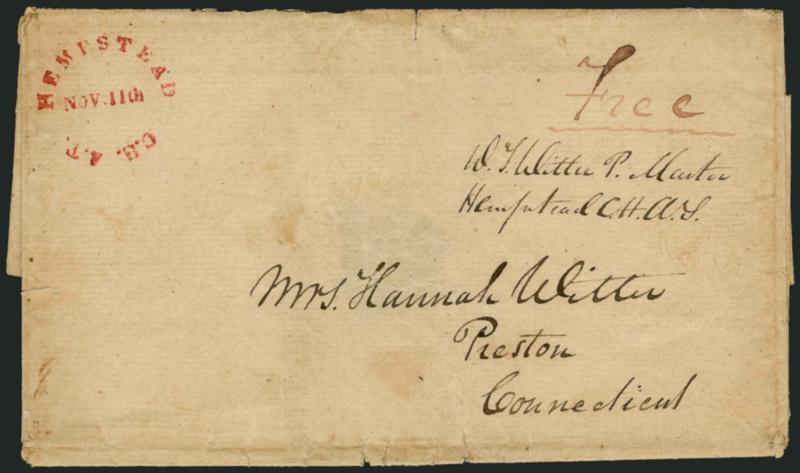 HEMPSTEAD C.H. A.T.
NOV. 11th
Free
W. T. Witter P. Master
Hempstead C.H. A.T.
Mrs. Hannah Witter
Preston
Connecticut